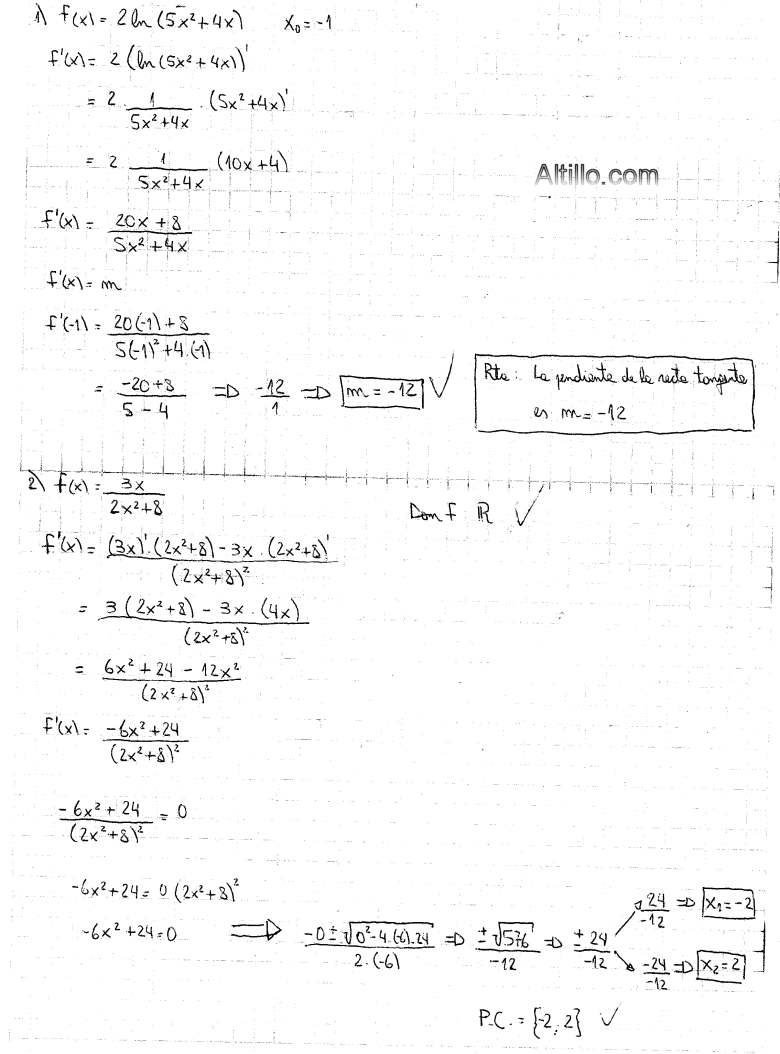 1) f(x) = 2 ln (5x²+4x) x₀ = -1
f'(x) = 2 (ln (5x²+4x))'
= 2 . 1/(5x²+4x) . (5x²+4x)'
= 2 . 1/(5x²+4x) (10x+4)
Altillo.com
f'(x) = (20x+8)/(5x²+4x)
f'(x) = m
f'(-1) = (20(-1)+8)/(5(-1)²+4.(-1))
= (-20+8)/(5-4) ⇒ -12/1 ⇒ m = -12 ✓
Rta: La pendiente de la recta tangente
es m = -12
2) f(x) = 3x/(2x²+8)
Dom f ℝ ✓
f'(x) = ((3x)'.(2x²+8) - 3x . (2x²+8)')/(2x²+8)²
= (3(2x²+8) - 3x . (4x))/(2x²+8)²
= (6x²+24-12x²)/(2x²+8)²
f'(x) = (-6x²+24)/(2x²+8)²
(-6x²+24)/(2x²+8)² = 0
-6x²+24 = 0 (2x²+8)²
-6x²+24 = 0 ⇒ (-0±√(0²-4.(-6).24))/(2.(-6)) ⇒ ±√576/-12 ⇒ ±24/-12
24/-12 ⇒ x₁ = -2
-24/-12 ⇒ x₂ = 2
P.C. = {-2, 2} ✓